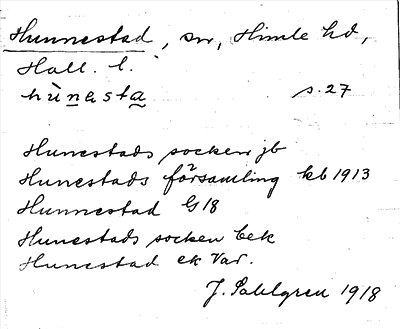 Hunnestad, sn, Himle hd,
Hall. l.
hùnasta s. 27
Hunestads socken jb
Hunestads församling kb 1913
Hunnestad G18
Hunestads socken Eek
Hunestad ek Var.
J. Sahlgren 1918